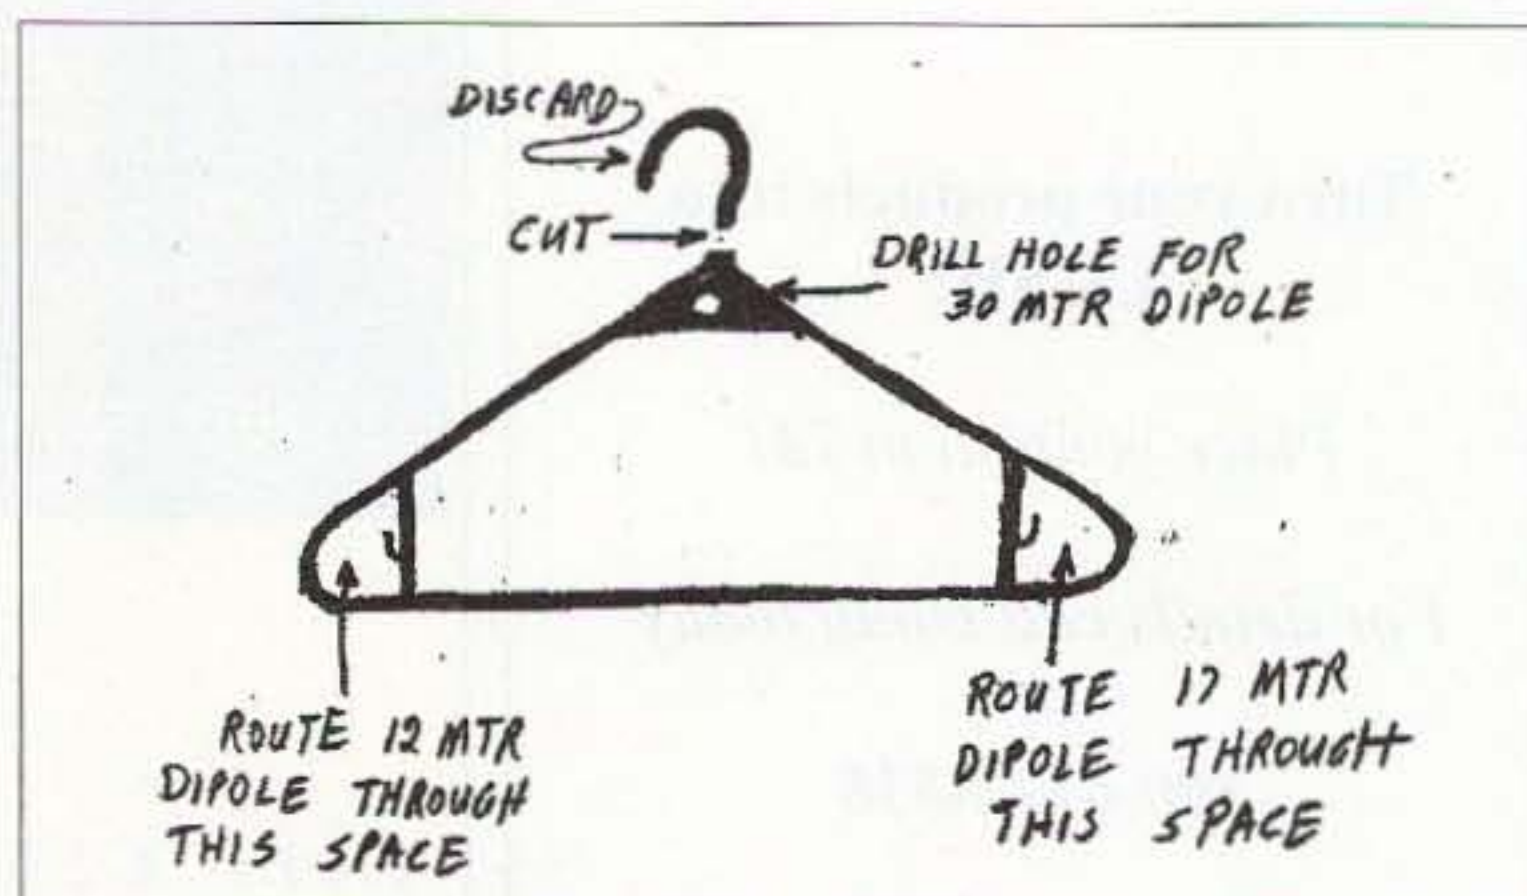 DISCARD
CUT
DRILL HOLE FOR
30 MTR DIPOLE
ROUTE 12 MTR
DIPOLE THROUGH
THIS SPACE
ROUTE 17 MTR
DIPOLE THROUGH
THIS SPACE